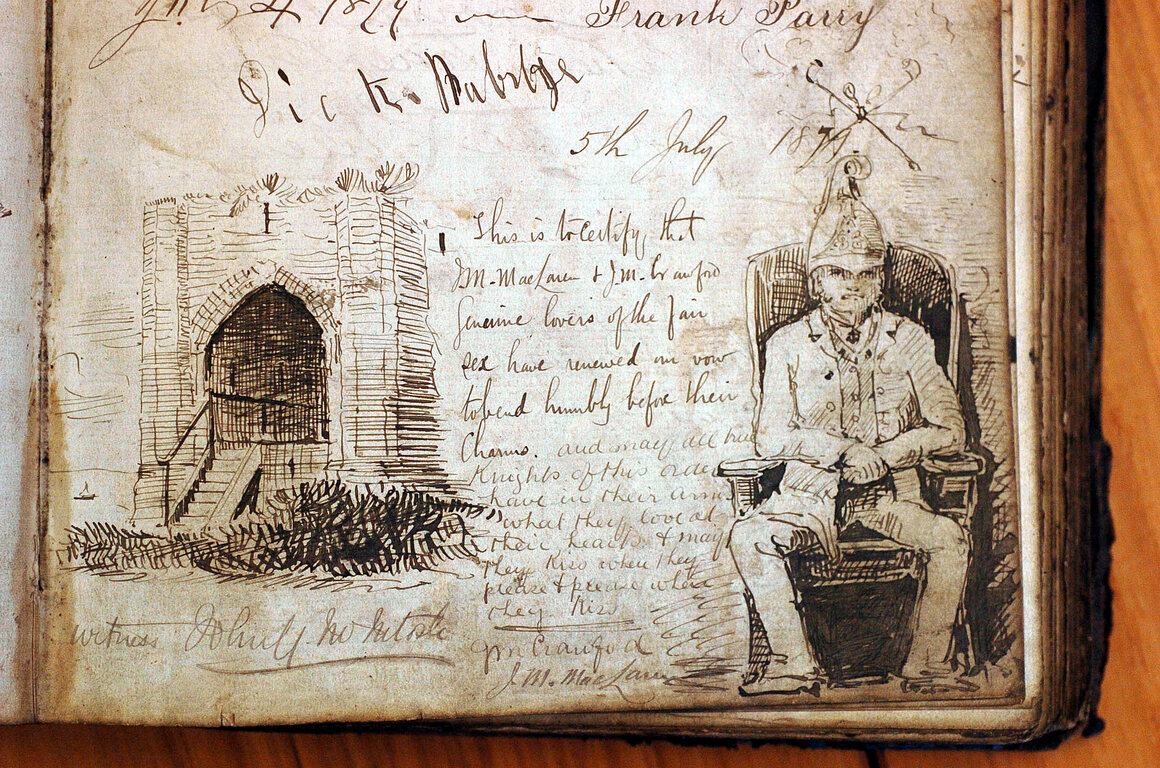 July 4 1879 Frank Parry
Dick
5th July 1879
This is to certify that
J.M. MacLaren & J.M. Crawford
Genuine lovers of the fair
sex have renewed our vow
to bend humbly before their
Charms. and may all true
Knights of this order
have in their arms
what they love at
their hearts & may
they Kiss when they
please & please when
they Kiss
JM Crawford
J.M. MacLaren
witness John McIntosh